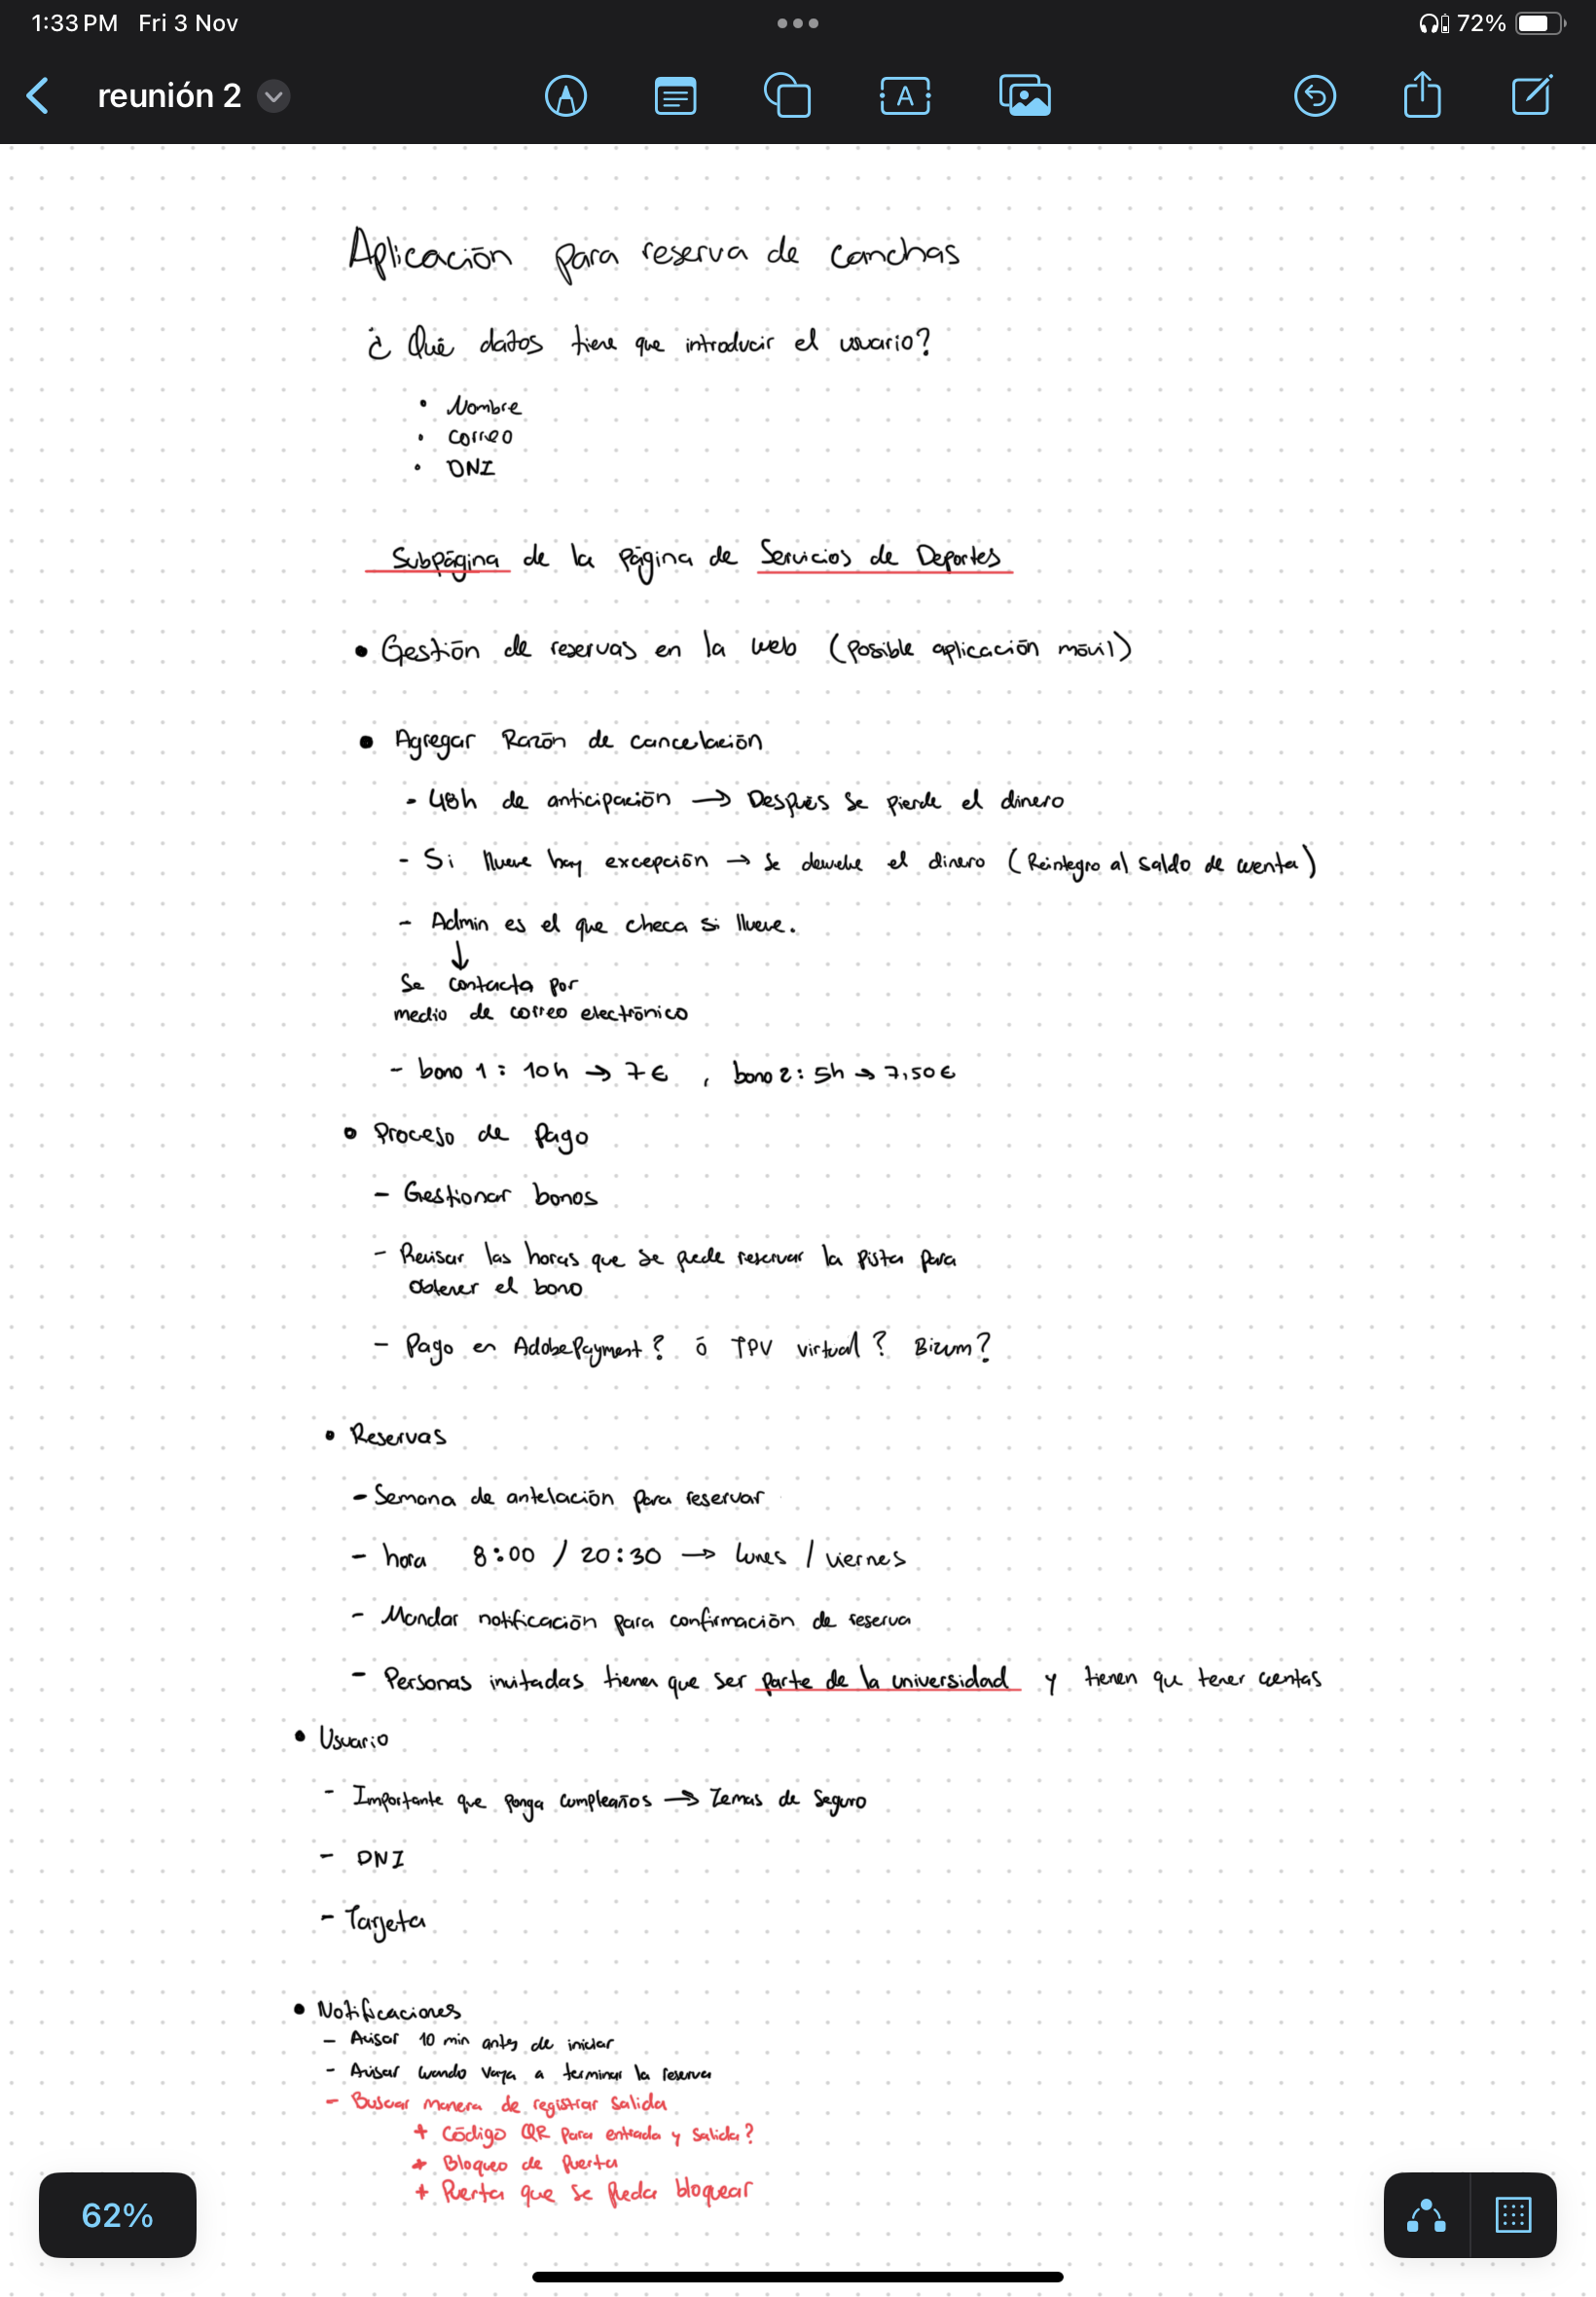 1:33 PM Fri 3 Nov 72%
reunión 2
Aplicación para reserva de canchas
¿ Qué datos tiene que introducir el usuario?
• Nombre
• Correo
• DNI
Subpágina de la página de Servicios de Deportes
• Gestión de reservas en la web (posible aplicación móvil)
• Agregar Razón de cancelación
- 48h de anticipación → Después se pierde el dinero
- Si llueve hay excepción → se devuelve el dinero (Reintegro al saldo de cuenta)
- Admin es el que checa si llueve.
↓
Se contacta por
medio de correo electrónico
- bono 1 : 10h → 7€ , bono 2: 5h → 7,50€
• Proceso de Pago
- Gestionar bonos
- Revisar las horas que se puede reservar la pista para
obtener el bono
- Pago en AdobePayment? ó TPV virtual? Bizum?
• Reservas
- Semana de antelación para reservar
- hora 8:00 / 20:30 → lunes / viernes
- Mandar notificación para confirmación de reserva
- Personas invitadas tienen que ser parte de la universidad y tienen que tener cuentas
• Usuario
- Importante que ponga cumpleaños → Temas de Seguro
- DNI
- Tarjeta
• Notificaciones
- Avisar 10 min antes de iniciar
- Avisar cuando vaya a terminar la reserva
- Buscar manera de registrar salida
+ Código QR para entrada y salida?
+ Bloqueo de Puerta
+ Puerta que se pueda bloquear
62%